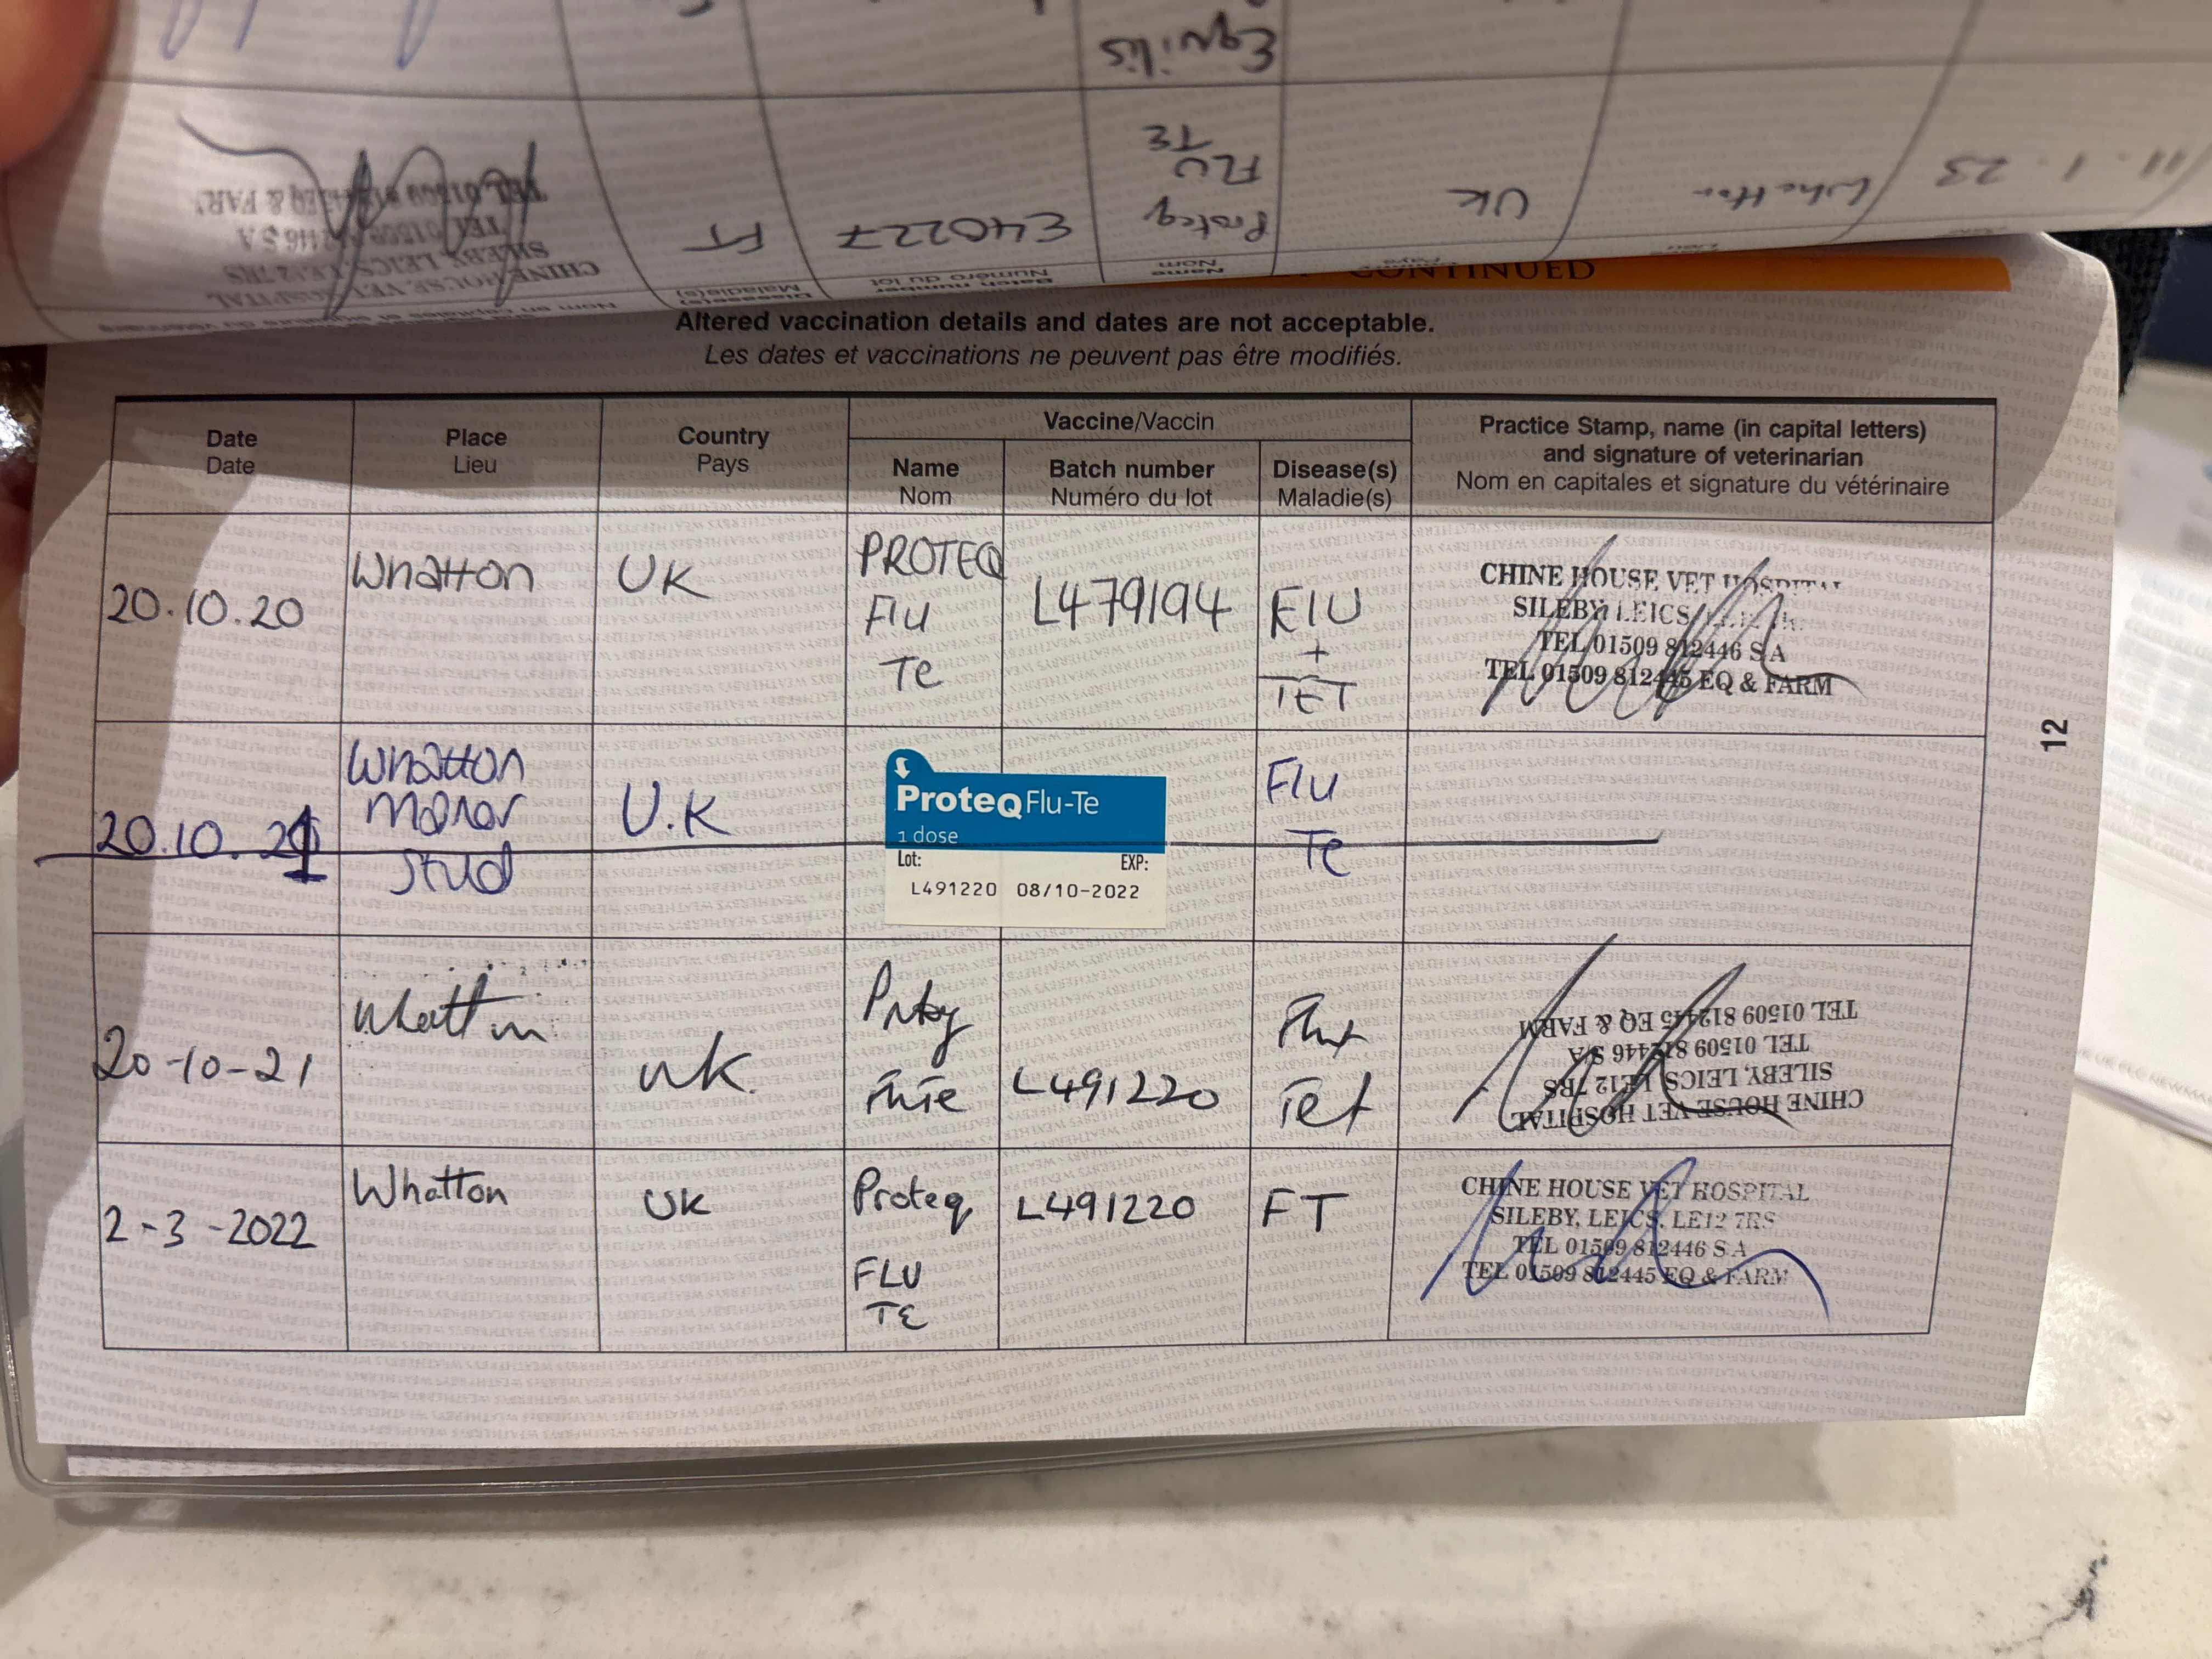 Equilis
11.1.23 Whatton UK Proteq FLU TE E40227 FT
CHINE HOUSE VET HOSPITAL
SILEBY, LEICS, LE12 7RS
CONTINUED
Altered vaccination details and dates are not acceptable.
Les dates et vaccinations ne peuvent pas être modifiés.
Date
Date
Place
Lieu
Country
Pays
Vaccine/Vaccin
Name
Nom
Batch number
Numéro du lot
Disease(s)
Maladie(s)
Practice Stamp, name (in capital letters)
and signature of veterinarian
Nom en capitales et signature du vétérinaire
20.10.20
Whatton
UK
PROTEQ
Flu
Te
L479194
FLU
+
TET
CHINE HOUSE VET HOSPITAL
SILEBY LEICS
TEL 01509 812446 S A
TEL 01509 812445 EQ & FARM
20.10.21
Whatton
Manor
Stud
U.K
ProteqFlu-Te
1 dose
Lot: EXP:
L491220 08/10-2022
Flu
Te
20-10-21
Whatton
UK.
L491220
Tet
CHINE HOUSE VET HOSPITAL
SILEBY, LEICS, LE12 7RS
TEL 01509 812446 S A
TEL 01509 812445 EQ & FARM
2-3-2022
Whatton
UK
Proteq
FLU
TE
L491220
FT
CHINE HOUSE VET HOSPITAL
SILEBY, LEICS, LE12 7RS
TEL 01509 812446 S A
TEL 01509 812445 EQ & FARM
12